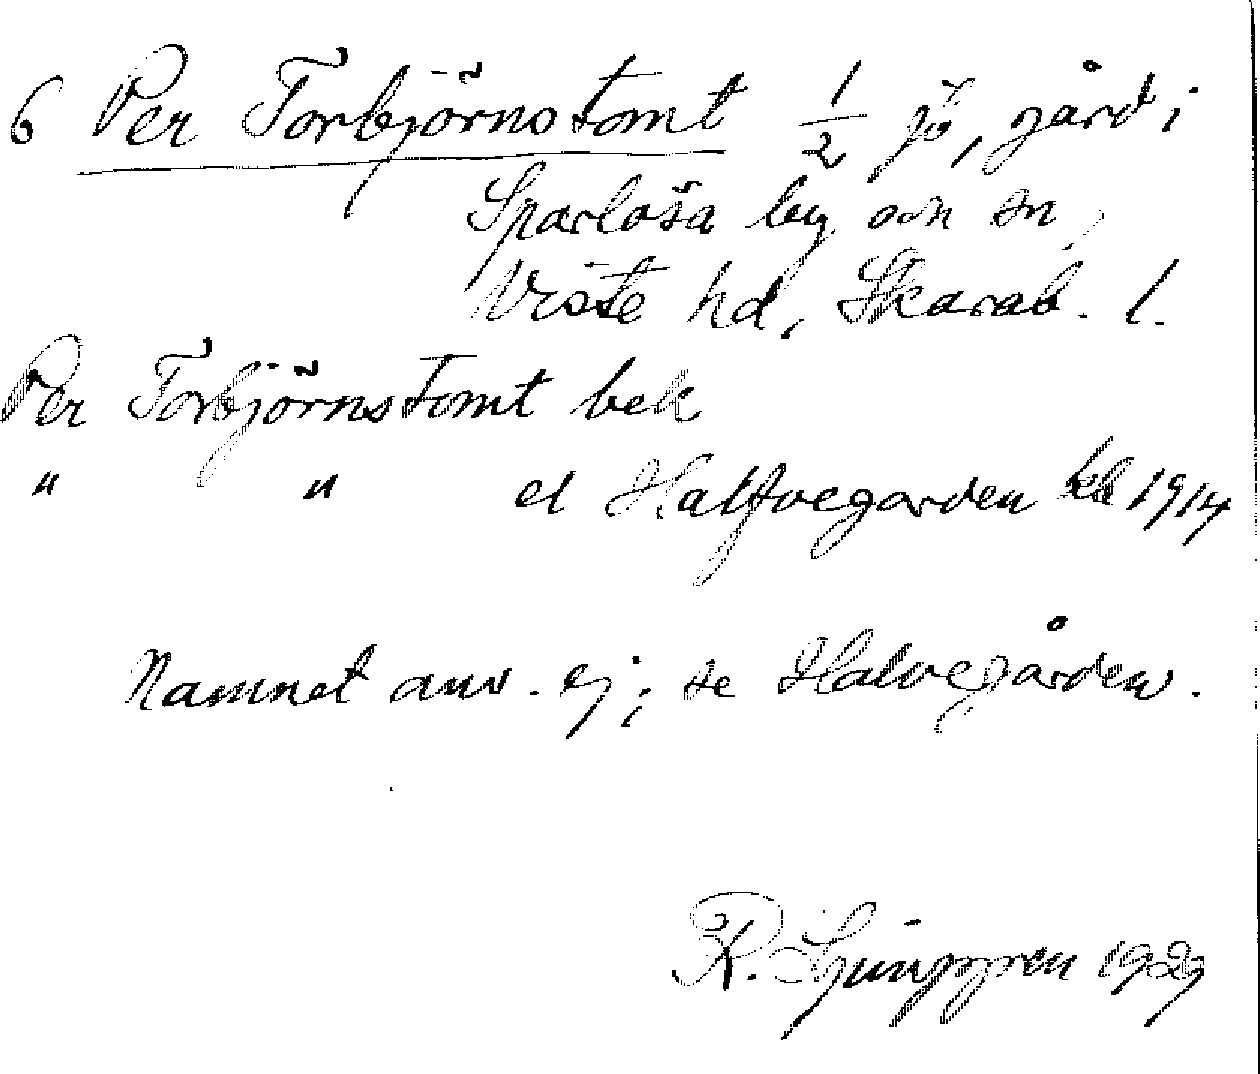 6 Per Torbjörnstomt 1/2 jö, gård i
Sparlösa by och sn,
Viste hd, Skarab. l.
Per Torbjörnstomt bek
" " el Halfvegården kb 1914
Namnet anv. ej; se Halvegården.
R. Ljunggren 1929